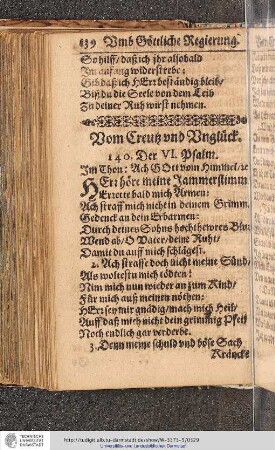 139 Vmb Göttliche Regierung.
So hilff / daß ich jhr alsobald
Im anfang widerstrebe:
Gib daß ich HErr beständig bleib /
Biß du die Seele von dem Leib
Zu deiner Ruh wirst nehmen.
Vom Creutz vnd Vnglück.
140. Der VI. Psalm.
Im Thon: Ach GOtt vom Himmel / ꝛc
HErr höre meine Jammerstimm
Errette bald mich Armen:
Ach straff mich nicht in deinem Grimm
Gedenck an dein Erbarmen:
Durch deines Sohns hochthewres Blut
Wend ab / O Vater / deine Ruht /
Damit du auff mich schlägest.
2. Ach straffe doch nicht meine Sünd /
Als woltestu mich tödten:
Nim mich nun wieder an zum Kind /
Für mich auß meinen nöthen:
HErr sey mir gnädig / mach mich heil /
Auff daß mich nicht dein grimmig Pfeil
Noch endlich gar verderbe.
3. Denn meine schuld vnd böse Sach
Kräncke
TECHNISCHE
UNIVERSITÄT
DARMSTADT
http://tudigit.ulb.tu-darmstadt.de/show/W-3373-5/0329
Universitäts- und Landesbibliothek Darmstadt